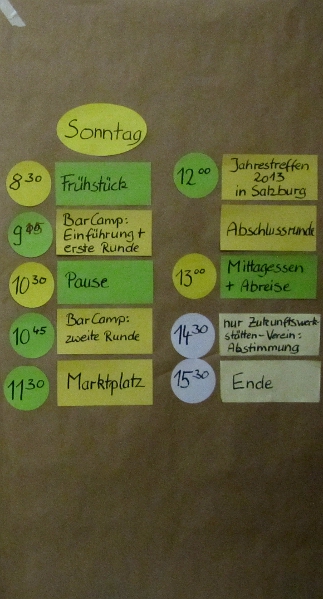 Sonntag
8 30
Frühstück
9
BarCamp:
Einführung +
erste Runde
10 30
Pause
10 45
BarCamp:
zweite Runde
11 30
Marktplatz
12 00
Jahrestreffen
2013
in Salzburg
Abschlussrunde
13 00
Mittagessen
+ Abreise
14 30
nur Zukunftswerk-
stätten-Verein:
Abstimmung
15 30
Ende